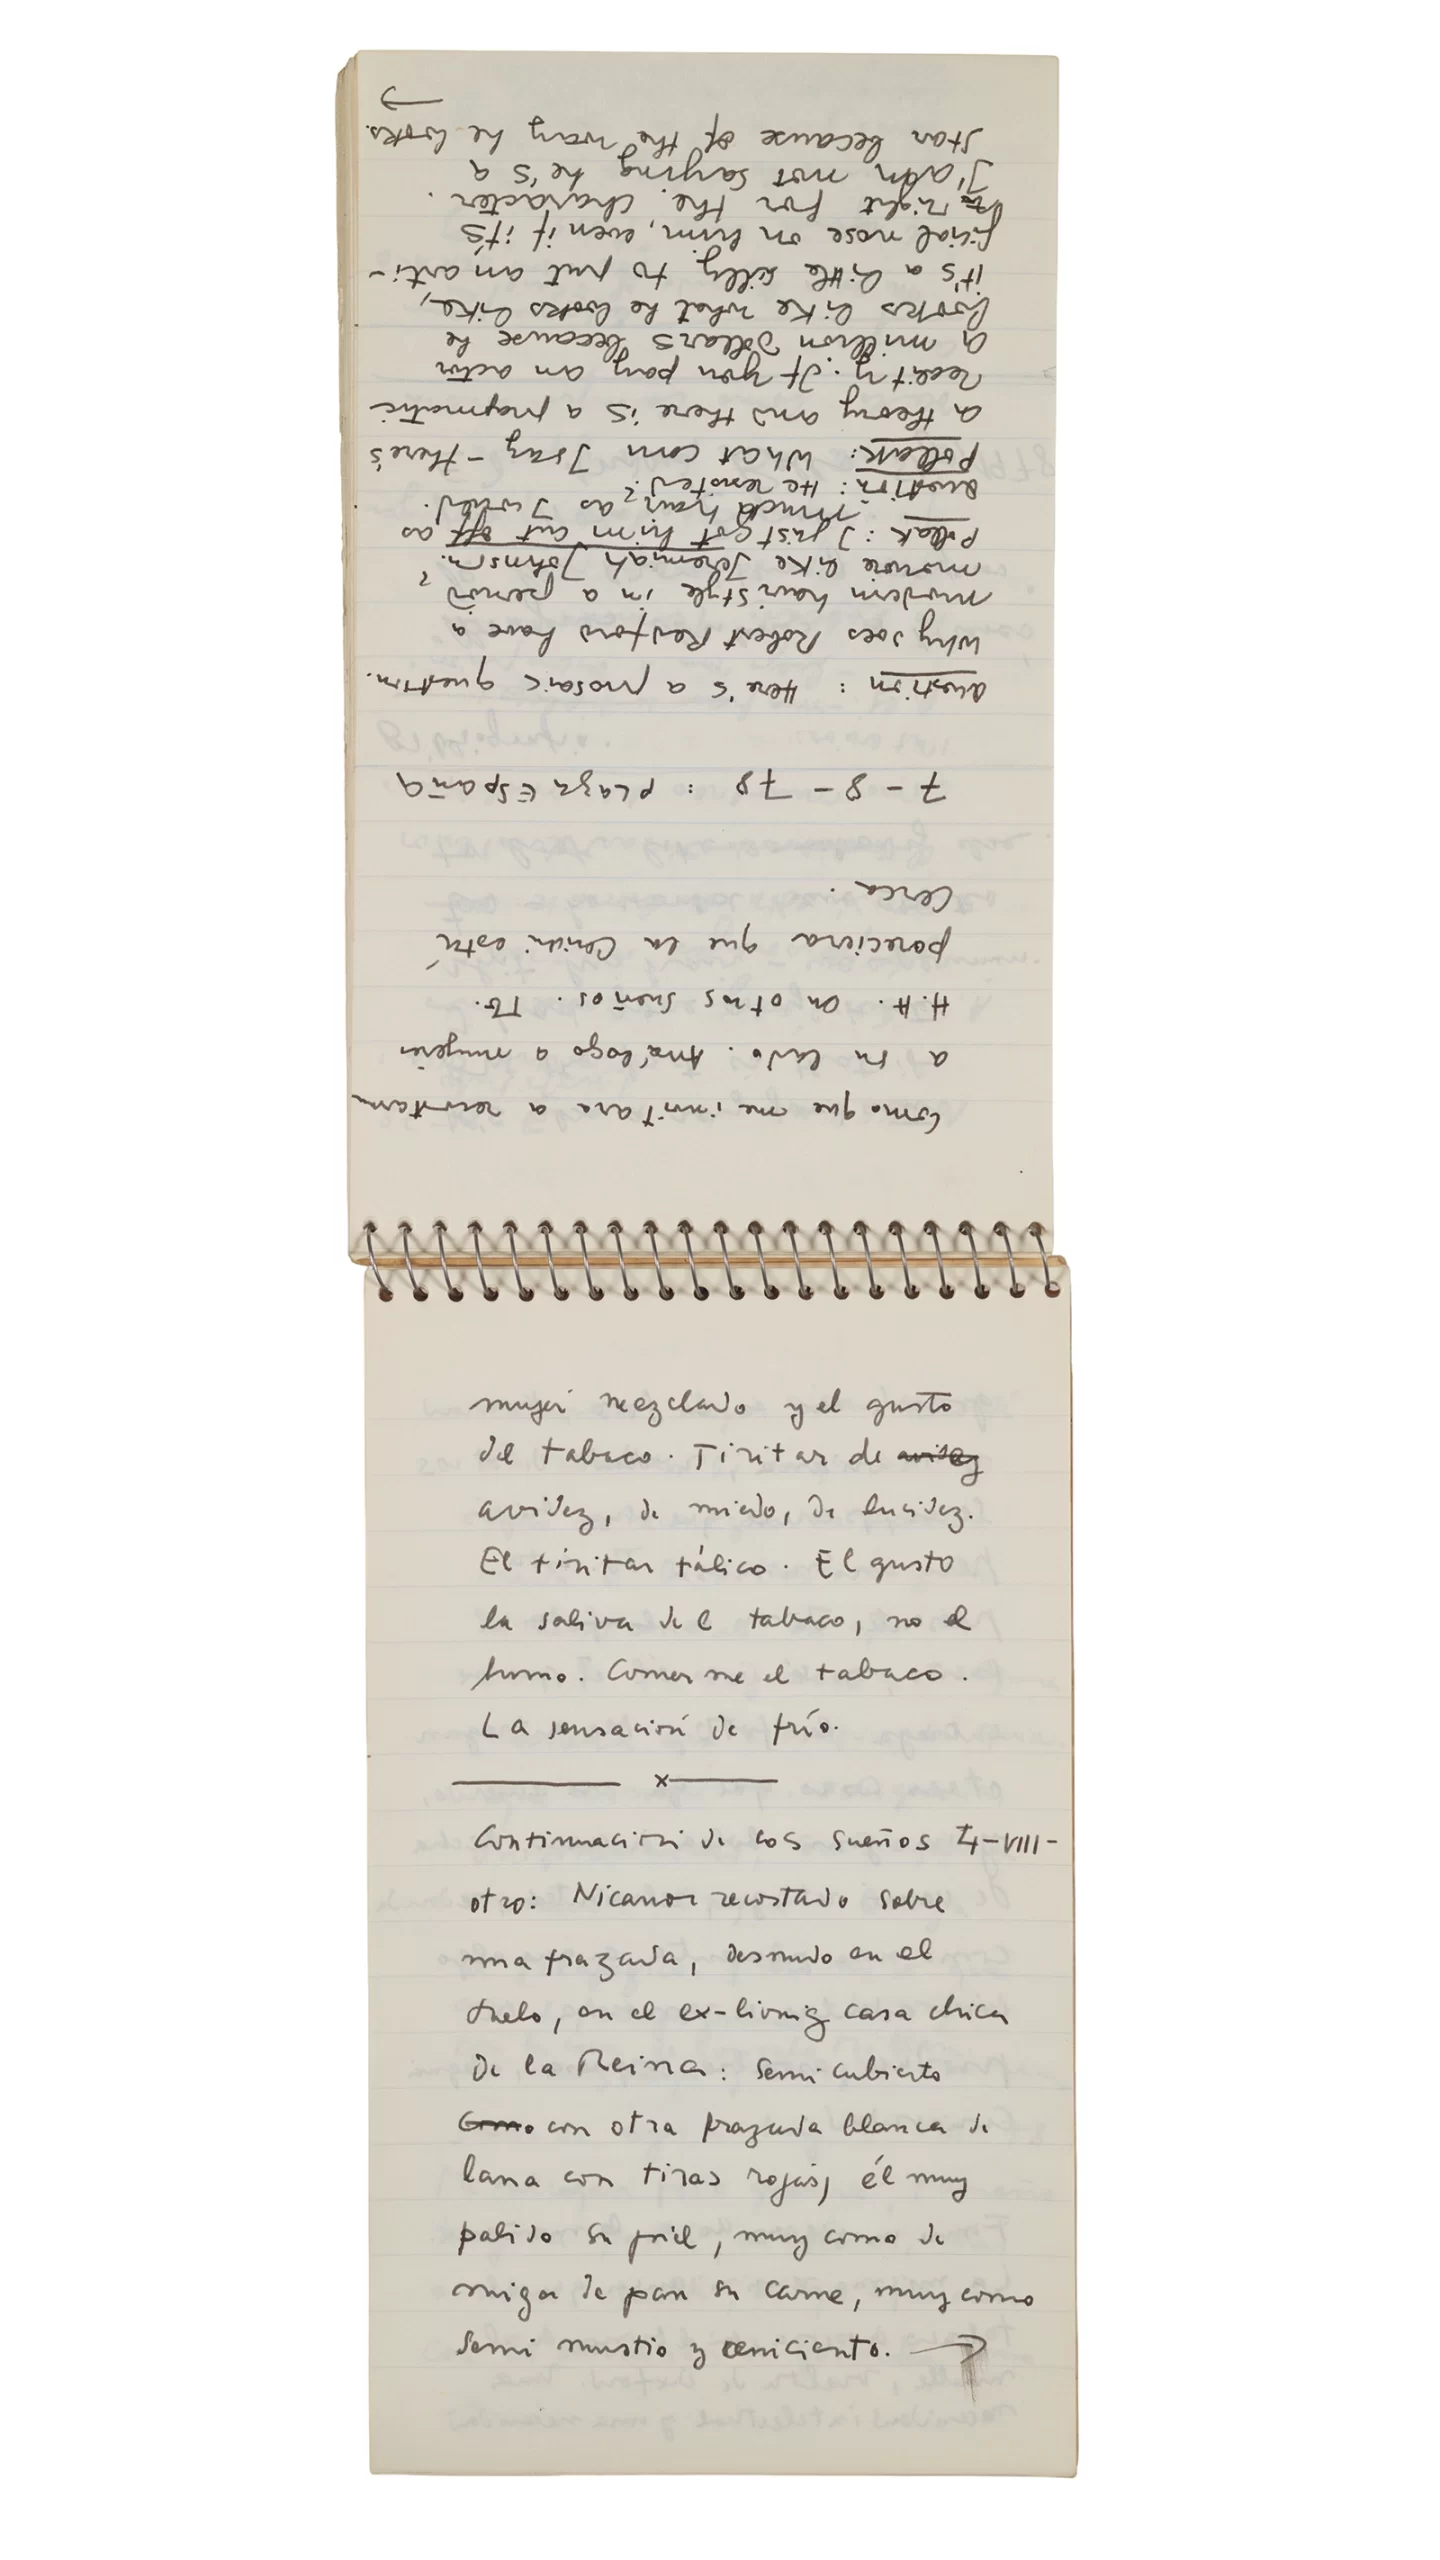 mujer mezclado y el gusto
del tabaco. Tiritar de avidez
avidez, de miedo, de lucidez.
El tiritar fálico. El gusto
la saliva del tabaco, no el
humo. Comerme el tabaco.
La sensación de frío.
x
Continuación de los sueños 4-VIII-
otro: Nicanor recostado sobre
una frazada, desnudo en el
suelo, en el ex-living casa chica
de la Reina: semi cubierto
Como con otra frazada blanca de
lana con tiras rojas, él muy
palido su piel, muy como de
miga de pan su carne, muy como
semi mustio y ceniciento. →
Como que me invitara a recostarm
a su lado. Análogo a mujeres
H.H. en otros sueños. Tb.
pareciera que la está
cerca.
7-8-78 : Playa España
Question: Here's a prosaic question.
Why does Robert Redford have a
modern hairstyle in a period
movie like Jeremiah Johnson?
Pollak: I just got him cut off as
much hair as I could.
Question: He resisted?
Pollak: What can I say – there's
a theory and there is a pragmatic
reality. If you pay an actor
a million dollars because he
looks like what he looks like,
it's a little silly to put an arti-
ficial nose on him, even if it's
right for the character.
I am not saying he's a
star because of the way he looks.
→